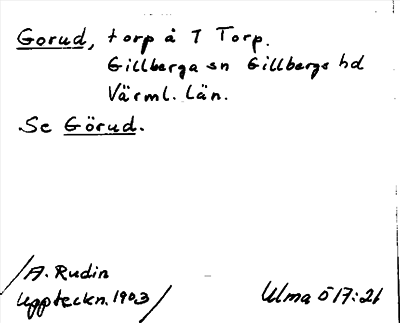 Gorud, torp å T Torp.
Gillberga sn Gillbergs hd
Värml. län.
Se Görud.
A. Rudin
Uppteckn. 1903
Ulma 517:21